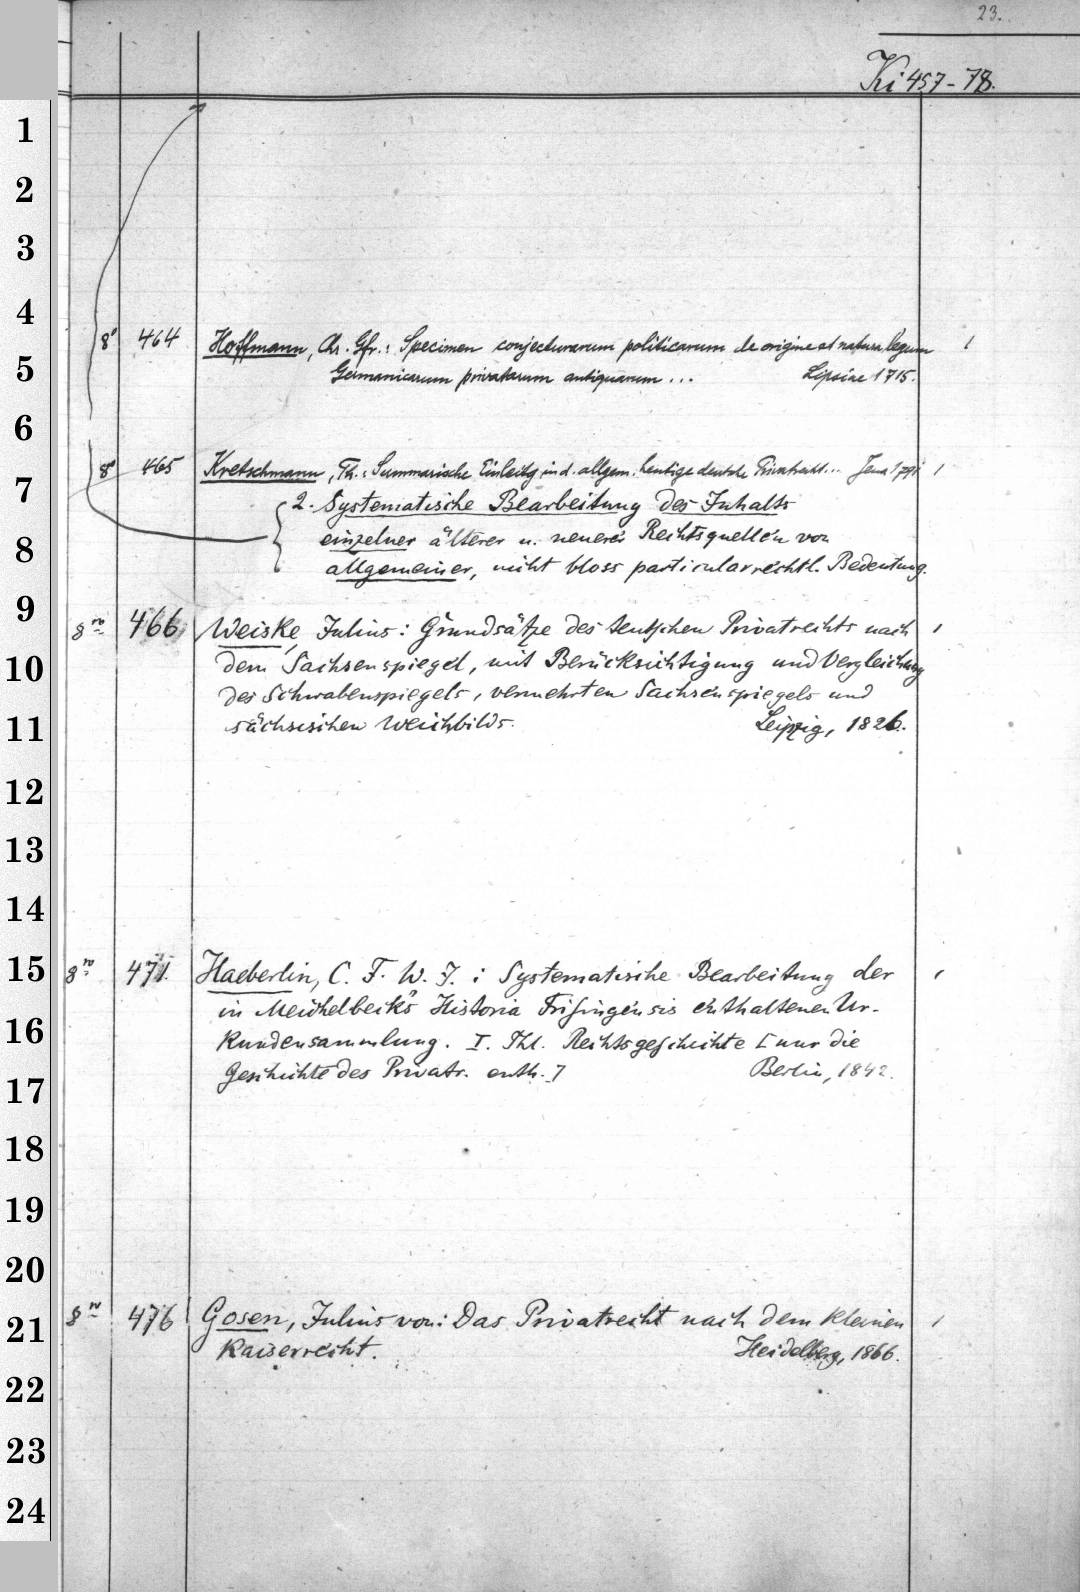 23.
Ki 457-78.
8° 464 Hoffmann, Chr. Gfr.: Specimen conjecturarum politicarum de origine et natura legum 1
Germanicarum privatarum antiquarum ... Lipsiae 1715.
8° 465 Kretschmann, Th.: Summarische Einleitg in d. allgem. heutige deutsche Privatrecht... Jena 1
2. Systematische Bearbeitung des Inhalts
einzelner älterer u. neuerer Rechtsquellen von
allgemeiner, nicht bloss particularrechtl. Bedeutung.
8vo 466 Weiske, Julius: Grundsätze des teutschen Privatrechts nach 1
dem Sachsenspiegel, mit Berücksichtigung und Vergleichung
des Schwabenspiegels, vermehrten Sachsenspiegels und
sächsischen Weichbilds. Leipzig, 1826.
8vo 471 Haeberlin, C. F. W. J.: Systematische Bearbeitung der 1
in Meichelbeck's Historia Frisingensis enthaltenen Ur-
kundensammlung. I. Thl. Rechtsgeschichte [nur die
Geschichte des Privatr. enth.] Berlin, 1842.
8vo 476 Gosen, Julius von: Das Privatrecht nach dem kleinen 1
Kaiserrecht. Heidelberg, 1866.
1
2
3
4
5
6
7
8
9
10
11
12
13
14
15
16
17
18
19
20
21
22
23
24